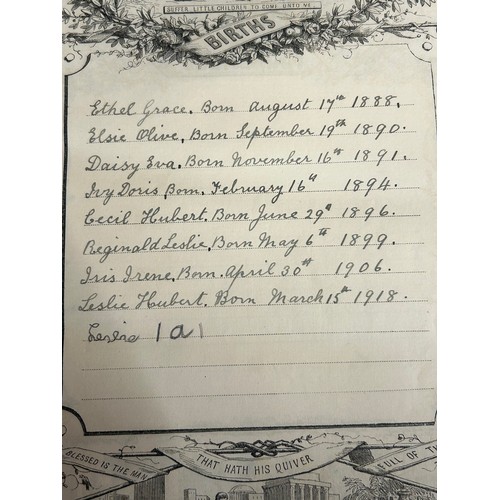 SUFFER LITTLE CHILDREN TO COME UNTO ME
BIRTHS
Ethel Grace. Born August 17th 1888.
Elsie Olive, Born September 19th 1890.
Daisy Eva. Born November 16th 1891.
Ivy Doris, Born. February 16th 1894.
Cecil Hubert. Born June 29th 1896.
Reginald Leslie, Born May 6th 1899.
Iris Irene, Born. April 30th 1906.
Leslie Hubert. Born March 15th 1918.
BLESSED IS THE MAN
THAT HATH HIS QUIVER
FULL OF